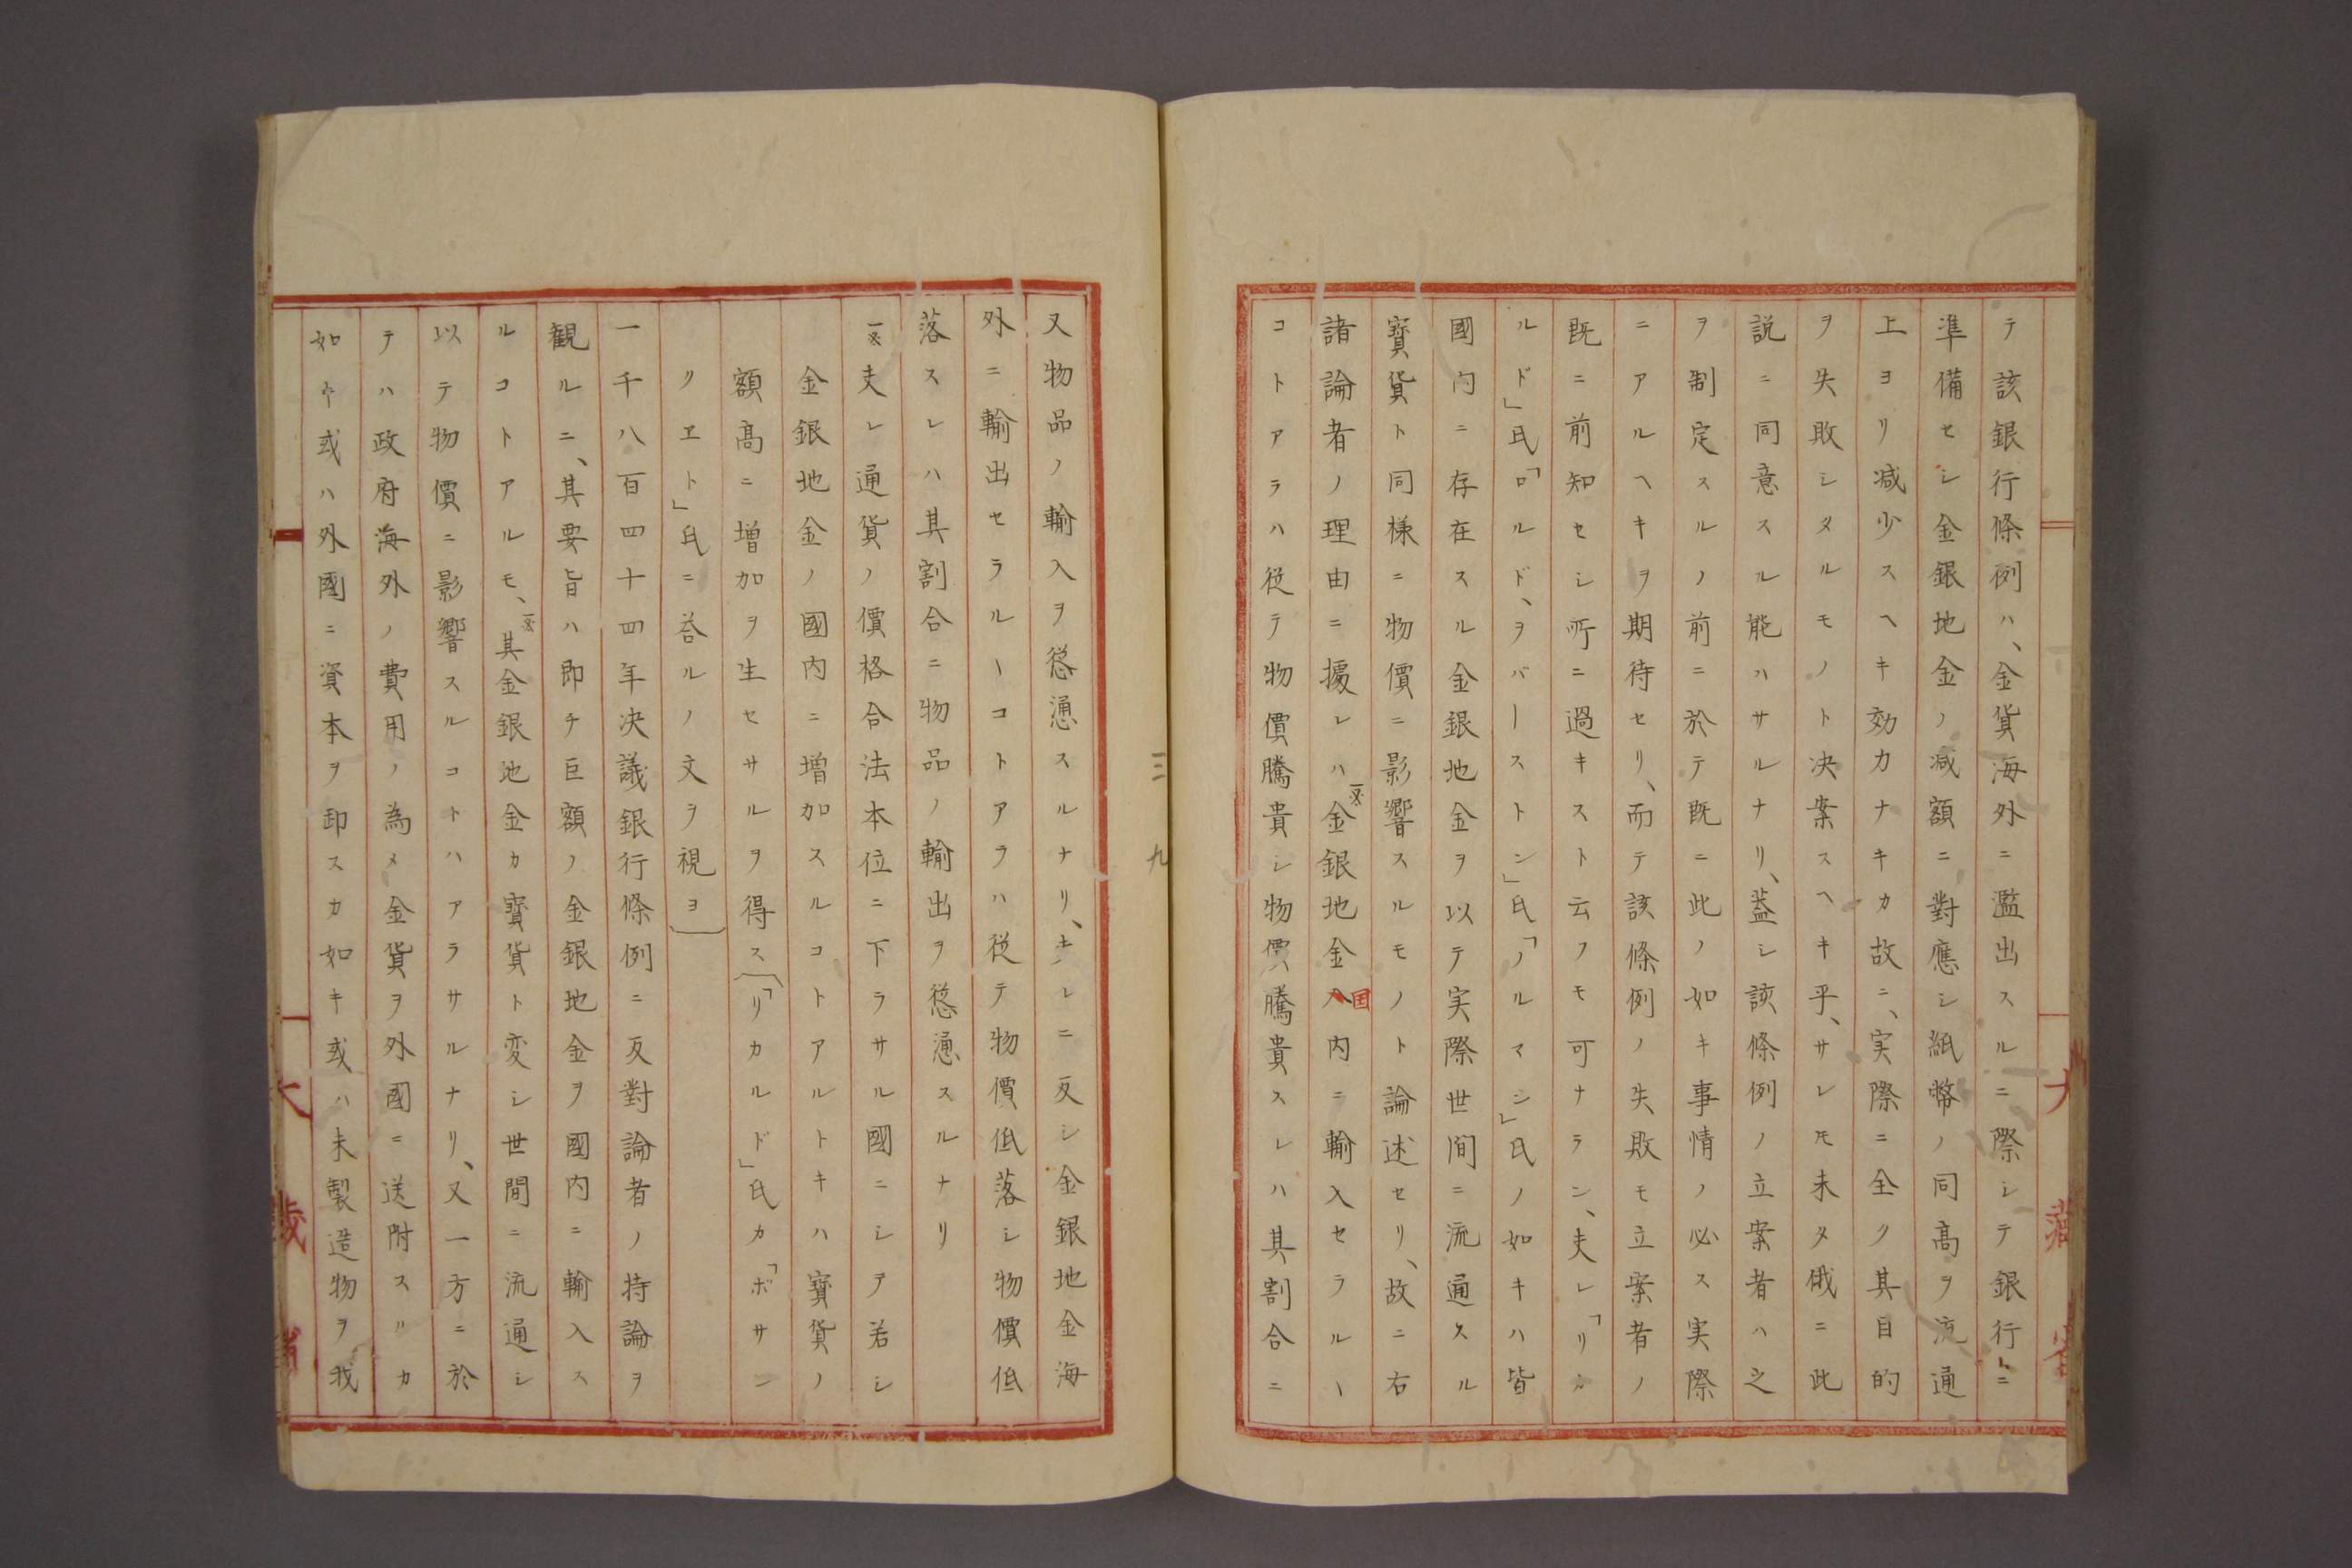 テ該銀行條例ハ、金貨海外ニ濫出スルニ際シテ銀行ニ
準備セシ金銀地金ノ減額ニ對應シ紙幣ノ同高ヲ流通
上ヨリ減少スヘキ効力ナキカ故ニ、実際ニ全ク其目的
ヲ失敗シタルモノト决案スヘキ乎、サレ𪜈未タ俄ニ此
説ニ同意スル能ハサルナリ、蓋シ該條例ノ立案者ハ之
ヲ制定スルノ前ニ於テ既ニ此ノ如キ事情ノ必ス実際
ニアルヘキヲ期待セリ、而テ該條例ノ失敗モ立案者ノ
既ニ前知セシ所ニ過キスト云フモ可ナラン、夫レ「リカ
ルド」氏「ロルド、ヲバーストン」氏「ノルマン」氏ノ如キハ皆
國内ニ存在スル金銀地金ヲ以テ実際世間ニ流通スル
寳貨ト同様ニ物價ニ影響スルモノト論述セリ、故ニ右
諸論者ノ理由ニ據レハ金銀地金国内ニ輸入セラルヽ
コトアラハ従テ物價騰貴シ物價騰貴スレハ其割合ニ
三九
又物品ノ輸入ヲ慫慂スルナリ、之レニ反シ金銀地金海
外ニ輸出セラルヽコトアラハ従テ物價低落シ物價低
落スレハ其割合ニ物品ノ輸出ヲ慫慂スルナリ
夫レ通貨ノ價格合法本位ニ下ラサル國ニシテ若シ
金銀地金ノ國内ニ増加スルコトアルトキハ寳貨ノ
額高ニ増加ヲ生セサルヲ得ス（「リカルド」氏カ「ボサン
リエト」氏ニ荅ルノ文ヲ視ヨ）
一千八百四十四年决議銀行條例ニ反對論者ノ持論ヲ
観ルニ、其要旨ハ即チ巨額ノ金銀地金ヲ國内ニ輸入ス
ルコトアルモ、其金銀地金カ寳貨ト変シ世間ニ流通シ
以テ物價ニ影響スルコトハアラサルナリ、又一方ニ於
テハ政府海外ノ費用ノ為メ金貨ヲ外國ニ送附スルカ
如ク或ハ外國ニ資本ヲ卸スカ如キ或ハ未製造物ヲ我